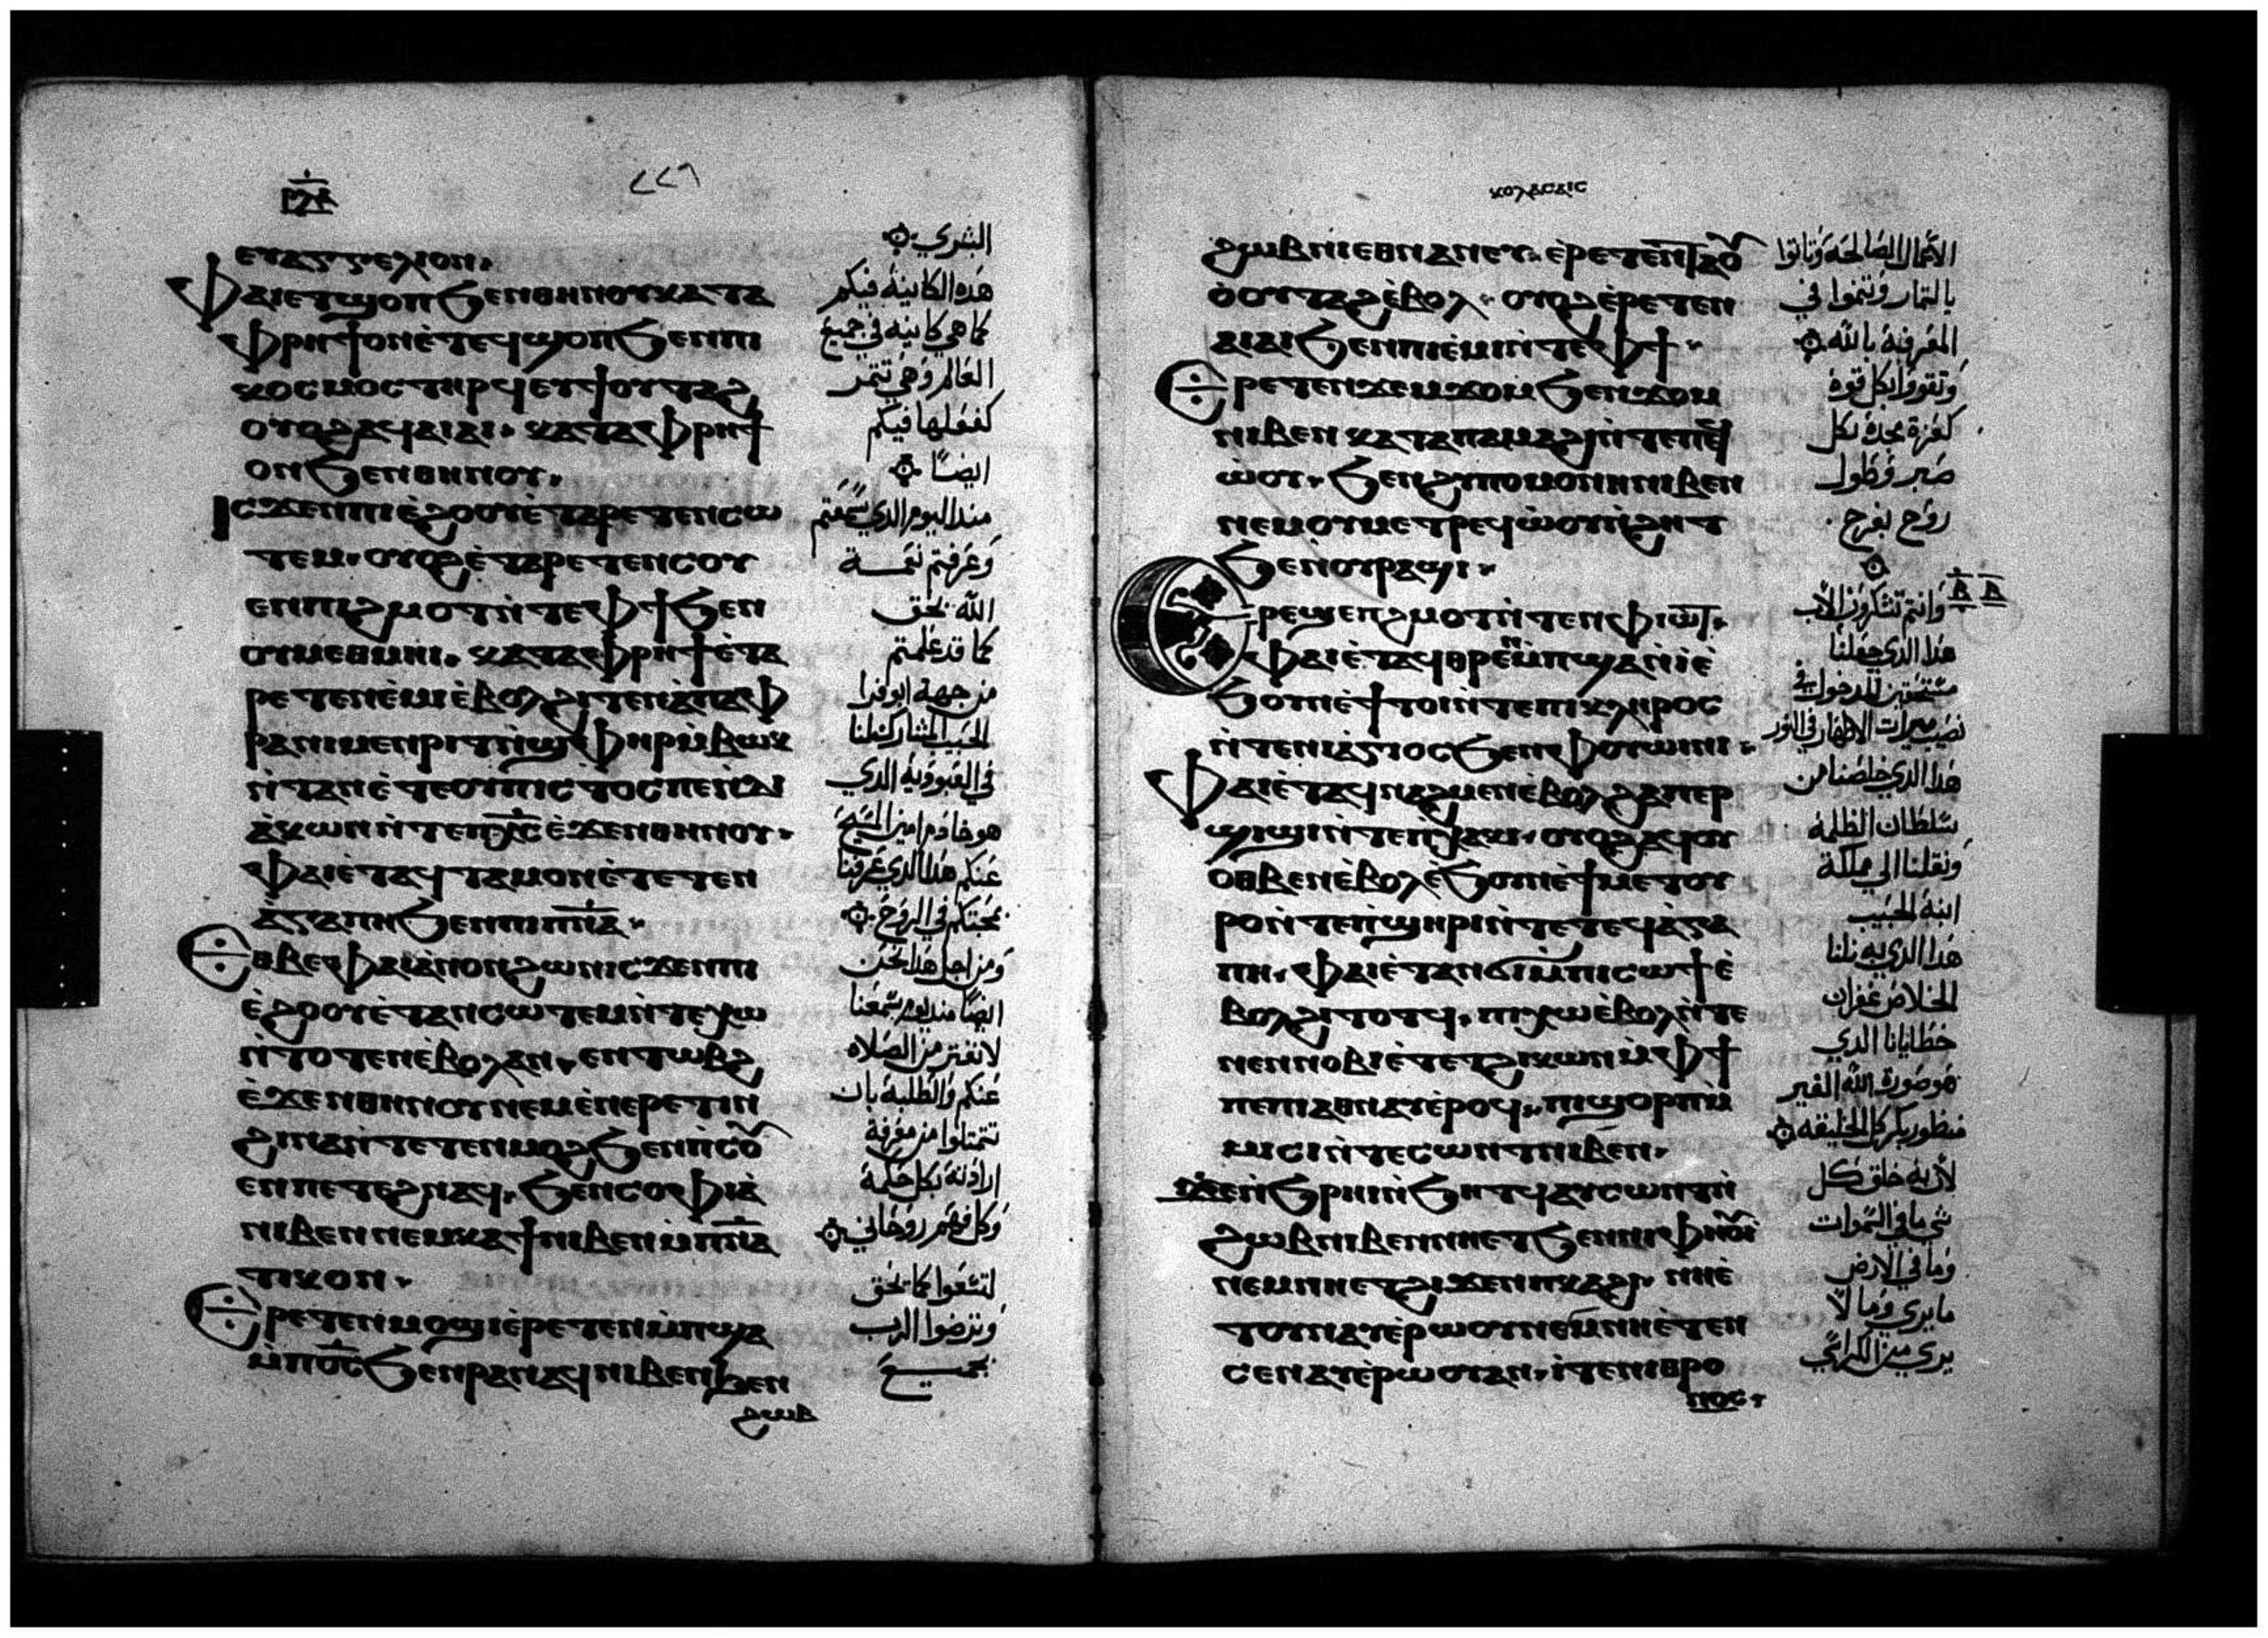 ⲉⲩⲁⲅⲅⲉⲗⲓⲟⲛ.
Ⲫⲁⲓⲉⲧϣⲟⲡϧⲉⲛⲑⲏⲛⲟⲩⲕⲁⲧⲁ
ⲫⲣⲏϯⲟⲛⲉ̀ⲧⲉϥϣⲟⲡϧⲉⲛⲡⲓ
ⲕⲟⲥⲙⲟⲥⲧⲏⲣϥⲉϥϯⲟⲩⲧⲁϩ
ⲟⲩⲟϩⲁϥⲁⲓⲁⲓ. ⲕⲁⲧⲁⲫⲣⲏϯ
ⲟⲛϧⲉⲛⲑⲏⲛⲟⲩ.
Ⲓⲥϫⲉⲛⲡⲓⲉ̀ϩⲟⲟⲩⲉ̀ⲧⲁⲣⲉⲧⲉⲛⲥⲱ
ⲧⲉⲙ. ⲟⲩⲟϩⲉ̀ⲧⲁⲣⲉⲧⲉⲛⲥⲟⲩ
ⲉⲛⲡⲓϩⲙⲟⲧⲛ̀ⲧⲉⲫϯϧⲉⲛ
ⲟⲩⲙⲉⲑⲙⲏⲓ. ⲕⲁⲧⲁⲫⲣⲏϯⲉ̀ⲧⲁ
ⲣⲉⲧⲉⲛⲉ̀ⲙⲓⲉ̀ⲃⲟⲗϩⲓⲧⲉⲛⲉ̀ⲡⲁⲫ
ⲣⲁⲡⲓⲙⲉⲛⲣⲓⲧⲛ̀ϣⲫⲏⲣⲙ̀ⲃⲱⲕ
ⲛ̀ⲧⲁⲛⲉ̀ⲧⲉⲟⲩⲡⲓⲥⲧⲟⲥⲡⲉⲛ̀ⲇⲓ
ⲁ̀ⲕⲱⲛⲛ̀ⲧⲉⲡⲭ̅ⲥ̅ⲉ̀ϫⲉⲛⲑⲏⲛⲟⲩ.
Ⲫⲁⲓⲉ̀ⲧⲁϥⲧⲁⲙⲟⲛⲉ̀ⲧⲉⲧⲉⲛ
ⲁ̀ⲅⲁⲡⲏϧⲉⲛⲡⲓⲡ̅ⲛ̅ⲁ̅.
Ⲉⲑⲃⲉⲫⲁⲓⲁ̀ⲛⲟⲛϩⲱⲛⲓⲥϫⲉⲛⲡⲓ
ⲉ̀ϩⲟⲟⲩⲉ̀ⲧⲁⲛⲥⲱⲧⲉⲙⲛ̀ⲧⲉⲛⲭⲱ
ⲛ̀ⲧⲟⲧⲉⲛⲉ̀ⲃⲟⲗⲁⲛ. ⲉⲛⲧⲱⲃϩ
ⲉ̀ϫⲉⲛⲑⲏⲛⲟⲩⲛⲉⲙⲉ̀ⲛⲉⲣⲉⲧⲓⲛ
ϩⲓⲛⲁⲛ̀ⲧⲉⲧⲉⲛⲙⲟϩϧⲉⲛⲡ̀ⲥⲟⲩ
ⲉⲛⲡⲉⲧⲉϩⲛⲁϥ. ϧⲉⲛⲥⲟⲫⲓⲁ̀
ⲛⲓⲃⲉⲛⲛⲉⲙⲕⲁϯⲛⲓⲃⲉⲛⲙ̀ⲡ̅ⲛ̅ⲁ̅
ⲧⲓⲕⲟⲛ.
Ⲉⲣⲉⲧⲉⲛⲙⲟϣⲓⲉ̀ⲣⲉⲧⲉⲛⲙ̀ⲡϣⲁ
ⲙ̀ⲡⲟ̅ⲥ̅ϧⲉⲛⲣⲁⲛⲁϥⲛⲓⲃⲉⲛϧⲉⲛ
ϩⲱⲃ
البشري
هذه الكاينة فيكم
كما هي كاينة في جميع
العالم وهي تتمر
كفعلها فيكم
ايضًا
منذ اليوم الذي سمعتم
وعرفتم نعمة
الله بحق
كما قد علمتم
من جهة ابوفرا
الحبيب المشارك لنا
في العبودية الذي
هو خادم امين المسيح
عنكم هذا الذي عرفنا
محبتكم في الروح
ومن اجل هذا نحن
ايضًا منذ يوم سمعنا
لا نفتر من الصلاه
عنكم والطلبة بان
تمتلوا من معرفة
ارادته بكل حكمة
وكل فهم روحاني
لتسعوا كما يحق
وترضوا الرب
بجميع
ⲕⲟⲗⲁⲥⲁⲓⲥ
ϩⲱⲃⲛⲓⲉⲑⲛⲁⲛⲉⲩ. ⲉ̀ⲣⲉⲧⲉⲛϯⲁⲟ
ⲟ̀ⲟⲩⲧⲁϩⲉ̀ⲃⲟⲗ. ⲟⲩⲟϩⲉ̀ⲣⲉⲧⲉⲛ
ⲁⲓⲁⲓϧⲉⲛⲡⲓⲉ̀ⲙⲓⲛ̀ⲧⲉⲫϯ.
Ⲉⲣⲉⲧⲉⲛϫⲉⲙϫⲟⲙϧⲉⲛϫⲟⲙ
ⲛⲓⲃⲉⲛⲕⲁⲧⲁⲡⲁⲙⲁϩⲓⲛ̀ⲧⲉⲡⲉϥ
ⲱ̀ⲟⲩ. ϧⲉⲛϩⲩⲡⲟⲙⲟⲛⲏⲛⲓⲃⲉⲛ
ⲛⲉⲙⲟⲩⲙⲉⲧⲣⲉϥⲱ̀ⲟⲩⲛ̀ϩⲏⲧ
ϧⲉⲛⲟⲩⲣⲁϣⲓ.
Ⲉⲣⲉϣⲉⲡϩⲙⲟⲧⲛ̀ⲧⲉⲛⲫⲓⲱⲧ.
ⲫⲁⲓⲉ̀ⲧⲁϥⲑⲣⲉⲛⲙ̀ⲡϣⲁⲛ̀ⲓⲉ̀
ϧⲟⲩⲛⲉ̀ϯⲧⲟⲓⲛ̀ⲧⲉⲡⲓⲕⲗⲏⲣⲟⲥ
ⲛ̀ⲧⲉⲛⲓⲁ̀ⲅⲓⲟⲥϧⲉⲛⲫⲟⲩⲱⲓⲛⲓ.
Ⲫⲁⲓⲉ̀ⲧⲁϥⲛⲁϩⲙⲉⲛⲉ̀ⲃⲟⲗϩⲁⲡⲉⲣ
ϣⲓϣⲓⲛ̀ⲧⲉⲡⲭⲁⲕⲓ. ⲟⲩⲟϩⲁϥⲟⲩ
ⲟⲑⲃⲉⲛⲉ̀ⲃⲟⲗⲉ̀ϧⲟⲩⲛⲉ̀ϯⲙⲉⲧⲟⲩ
ⲣⲟⲛ̀ⲧⲉⲡ̀ϣⲏⲣⲓⲛ̀ⲧⲉⲧⲉϥⲁ̀ⲅⲁ
ⲡⲏ. ⲫⲁⲓⲉ̀ⲧⲁⲛϭⲓⲙ̀ⲡⲓⲥⲱϯⲉ̀
ⲃⲟⲗϩⲓⲧⲟⲧϥ. ⲡⲓⲭⲱⲉ̀ⲃⲟⲗⲛ̀ⲧⲉ
ⲛⲉⲛⲛⲟⲃⲓⲉ̀ⲧⲉⲧϩⲓⲕⲱⲛⲙ̀ⲫϯ
ⲡⲉⲡⲓⲁⲑⲛⲁⲩⲉ̀ⲣⲟϥ. ⲡⲓϣⲟⲣⲡⲙ̀
ⲙⲓⲥⲓⲛ̀ⲧⲉⲥⲱⲛⲧⲛⲓⲃⲉⲛ.
Ϫⲉⲛ̀ϧⲣⲏⲓⲛ̀ϧⲏⲧϥⲁⲩⲥⲱⲛⲧⲛ̀
ϩⲱⲃⲛⲓⲃⲉⲛⲛⲏⲉⲧϧⲉⲛⲛⲓⲫⲏⲟⲩⲓ
ⲛⲉⲙⲛⲏⲉⲧϩⲓϫⲉⲛⲡⲕⲁϩⲓ. ⲛⲏⲉ̀
ⲧⲟⲩⲛⲁⲩⲉ̀ⲣⲱⲟⲩⲛⲉⲙⲛⲏⲉ̀ⲧⲉⲛ
ⲥⲉⲛⲁⲩⲉ̀ⲣⲱⲟⲩⲁⲛ. ⲓ̀ⲧⲉⲛⲓⲑⲣⲟ
ⲛⲟⲥ.
الاعمال الصالحة وتاتوا
بالتمار وتنموا في
المعرفة بالله
وتقووا بكل قوة
كعزة مجده بكل
صبر وطول
روح بفرح
وانتم تشكرون الاب
هذا الذي جعلنا
مستحقين للدخول في
نصيب ميرات الاطهار في النور
هذا الذي خلصنا من
سلطان الظلمة
ونقلنا الي مملكة
ابنه الحبيب
هذا الذي به نلنا
الخلاص غفران
خطايانا الذي
هو صورة الله الغير
منظور بكر كل الخليقه
لان به خلق كل
شي ما في السموات
وما في الارض
ما يري وما لا
يري من الكراسي